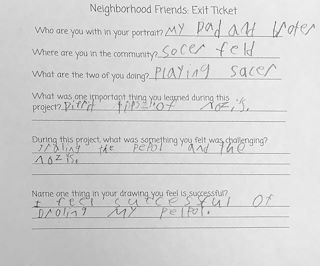 Neighborhood Friends: Exit Ticket
Who are you with in your portrait? MY Dad aNd broter
Where are you in the community? Socer feld
What are the two of you doing? PlAYing sacer
What was one important thing you learned during this
project? Difrit of nozis.
During this project, what was something you felt was challenging?
Droling the pepol and the
nozis.
Name one thing in your drawing you feel is successful?
I feel successful Of
Droling MY pelpol.